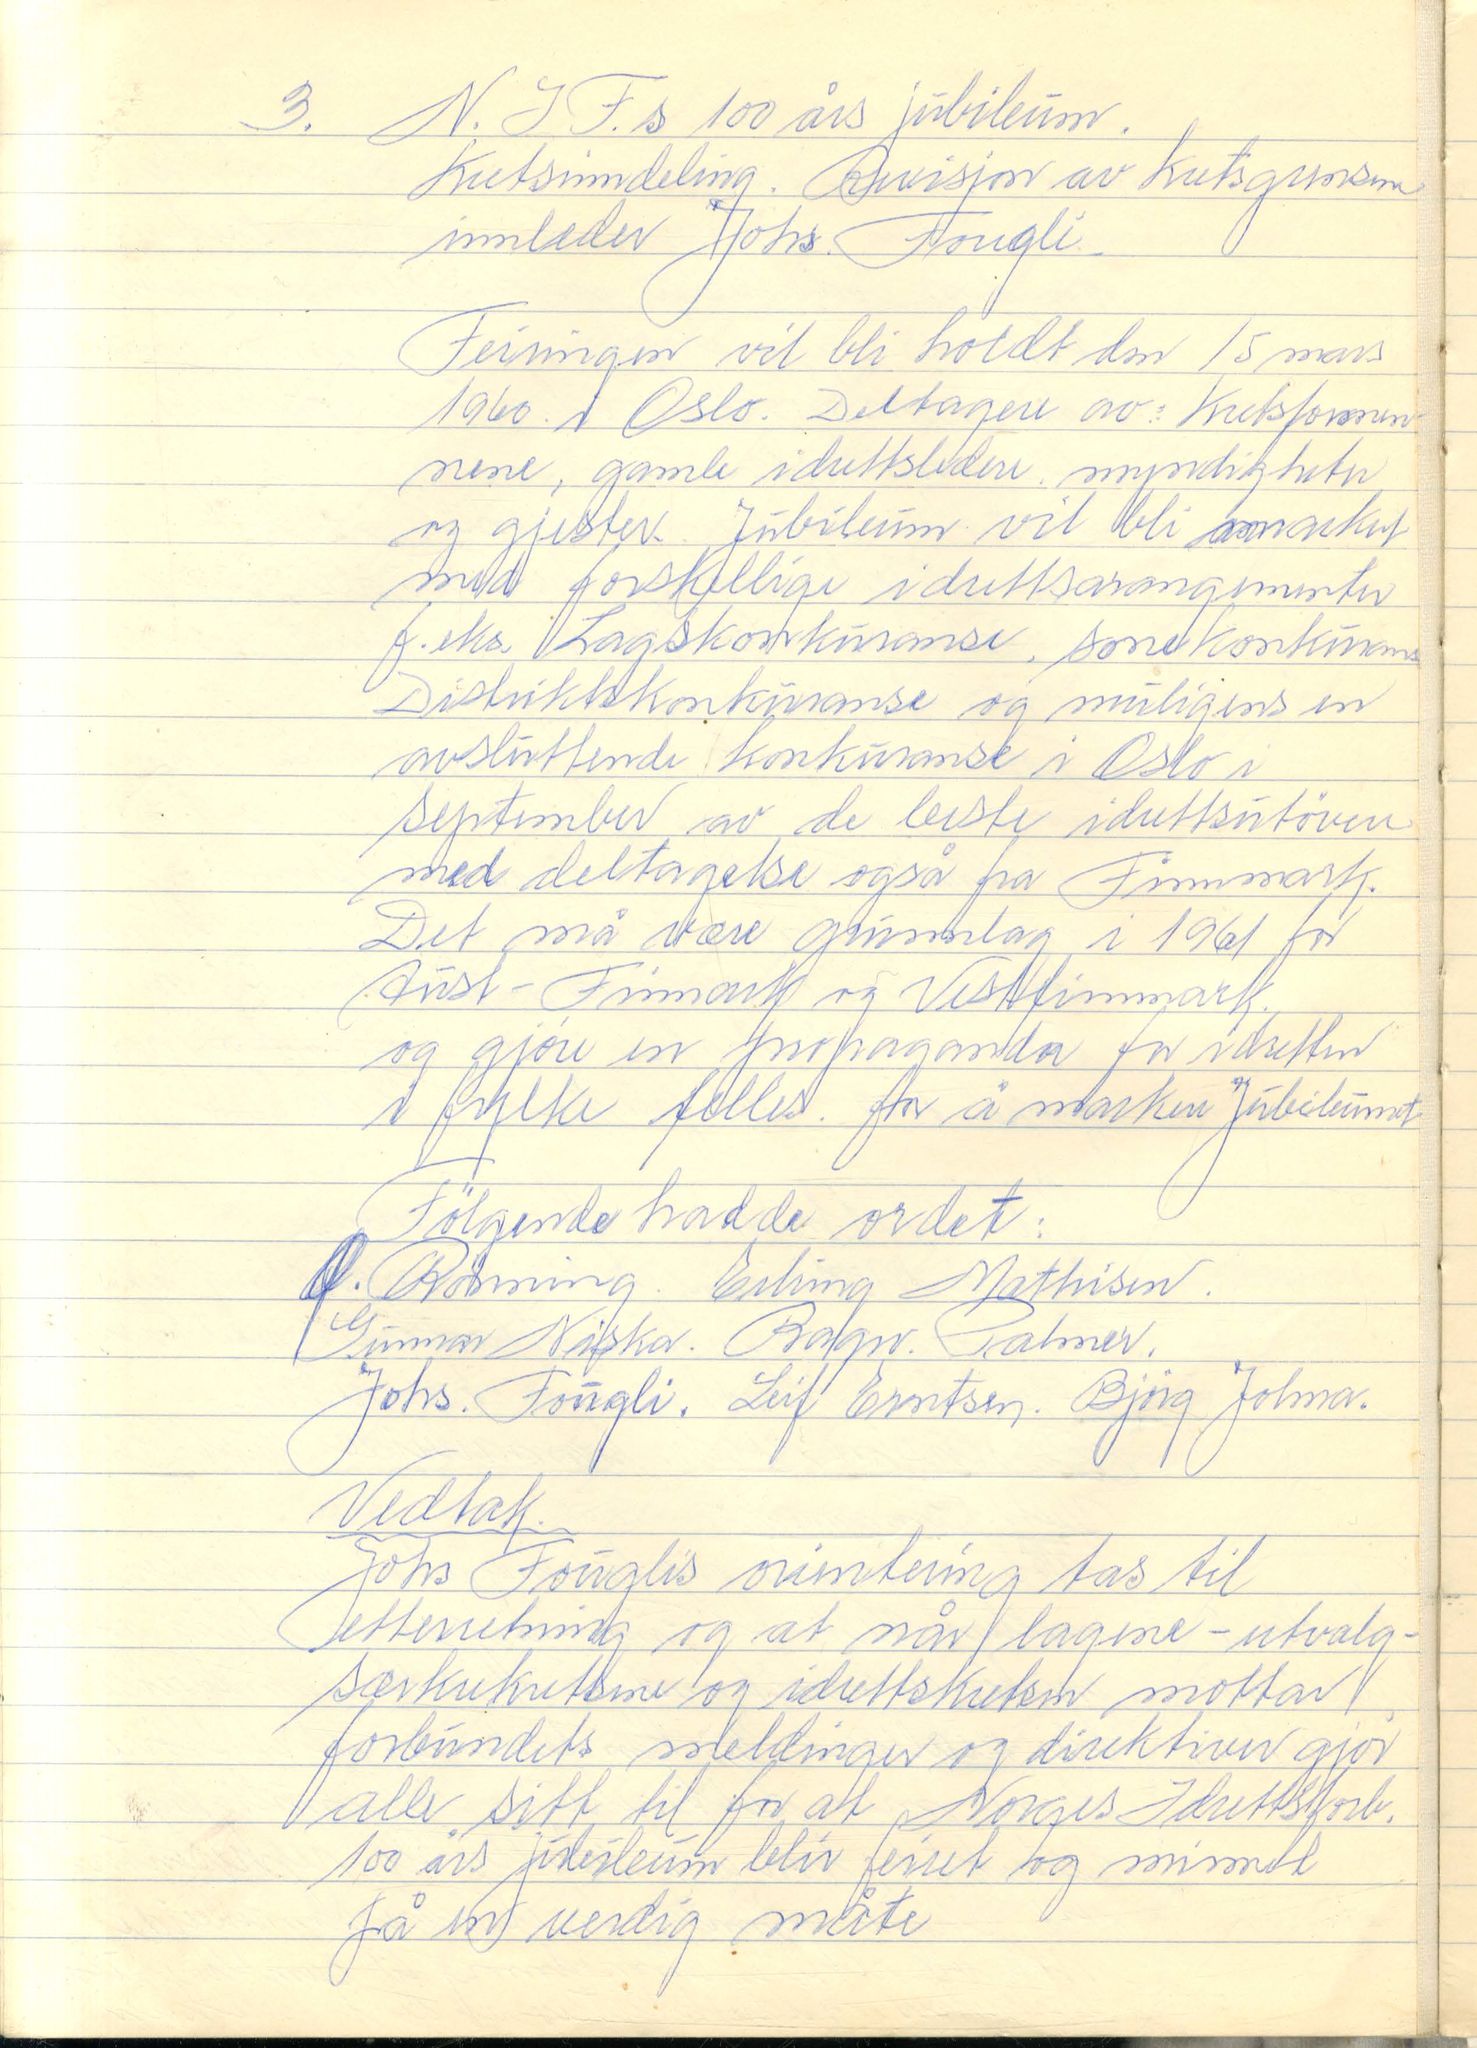 3. N. I F.s 100 års jubileum.
Kretsinndeling. Revisjon av kretsgrensene
innleder Johs. Fougli
Feiringen vil bli holdt den 15 mars
1960. i Oslo. Deltagere av: Kretsformen-
nene, gamle idrettsledere. myndigheter
og gjester. Jubileum vil bli markert
med forskellige idrettsarangementer
f. eks. Lagskonkuranse, sonekonkuranse
Distriktskonkuranse og muligens en
avsluttende konkuranse i Oslo i
september av de beste idrettsutövere
med deltagelse også fra Finnmark.
Det må være grunnlag i 1961 for
Aust-Finmark og Vestfinnmark.
og gjøre en propaganda for idretten
i fylke felles. for å markere Jubileumet
Fölgende hadde ordet:
O. Rönning. Erling Mathisen.
Gunnar Niska. Ragnv. Palmer.
Johs. Fougli. Leif Erntsen. Bjørg Jolma.
Vedtak.
Johs Fouglis orientering tas til
etterretning og at når lagene - utvalg-
særkrekretsene og idrettskretsen mottar
forbundets meldinger og direktiver gjør
alle sitt til for at Norges Idrettsforb.
100 års jubileum bliv feiret og minnet
på en verdig måte